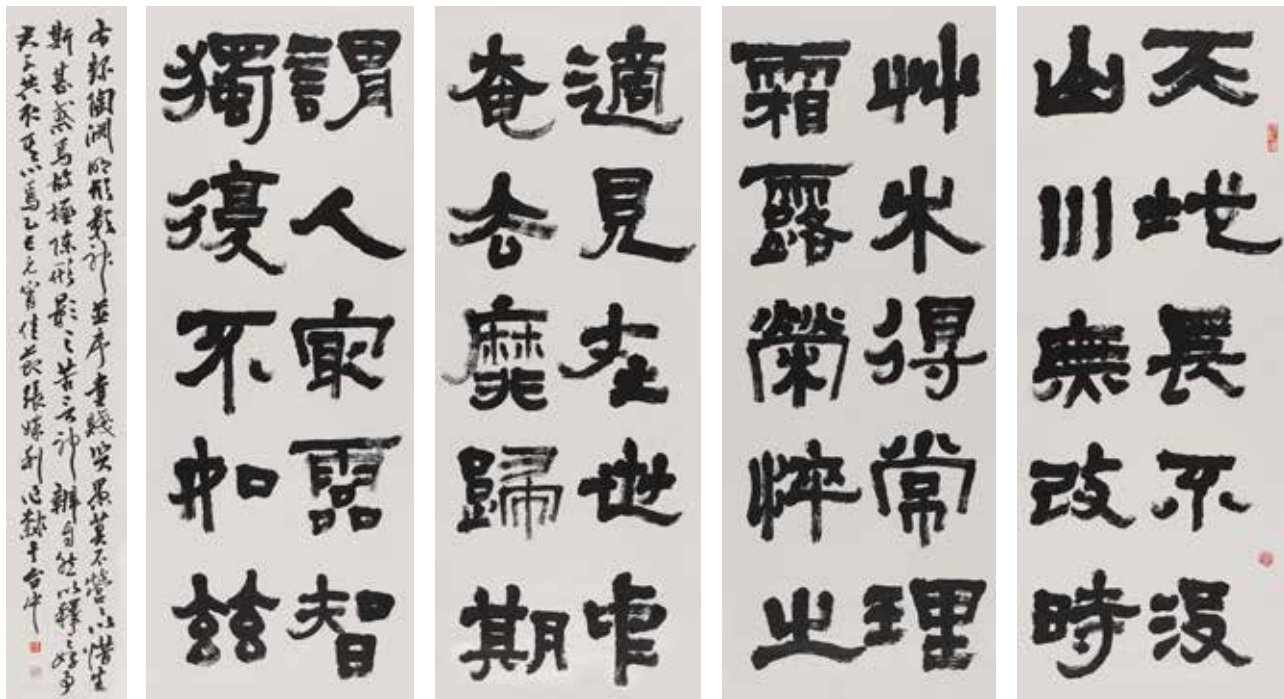 天地長不没
山川無改時
艸木得常理
霜露榮悴之
適見在世中
奄去靡歸期
謂人最霝智
獨復不如兹
右録陶淵明形影神並序貴賤賢愚莫不營々以惜生
斯甚惑焉故極陳形影之苦言神辨自然以釋之好事
君子共取其心焉乙巳元宵佳節張利作隸于台中